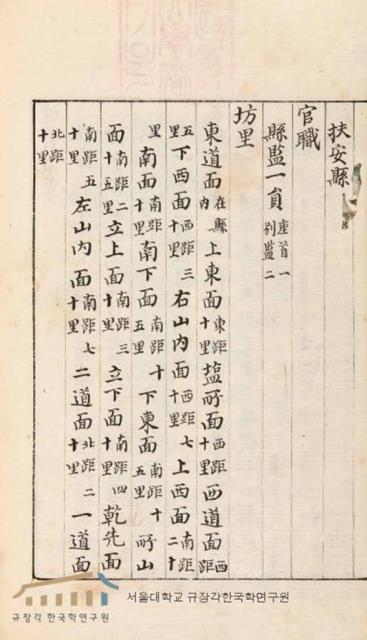 扶安縣
官職
縣監一員 座首一 别監二
坊里
東道面 在縣內 上東面 東距十里 塩所面 西距十里 西道面 西距
五里 下西面 西距三十里 右山內面 西距七十里 上西面 南距二十
里 南面 南距十里 南下面 南距十五里 下東面 南距十五里 所山
面 南距二十五里 立上面 南距三十里 立下面 南距四十里 乾先面
南距五十里 左山內面 南距七十里 二道面 北距二十里 一道面
北距十里
규장각 한국학연구원
서울대학교 규장각한국학연구원